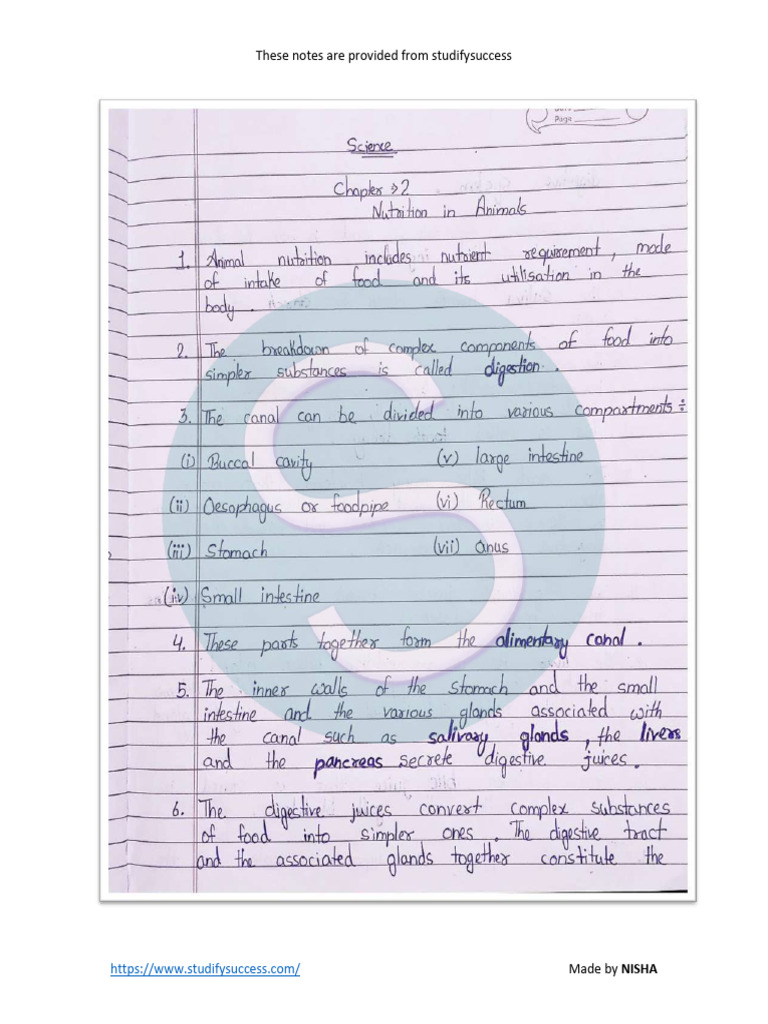 These notes are provided from studifysuccess
Page
Science
Chapter → 2
Nutrition in Animals
1. Animal nutrition includes nutrient requirement, mode
of intake of food and its utilisation in the
body.
2. The breakdown of complex components of food into
simpler substances is called digestion.
3. The canal can be divided into various compartments ÷
(i) Buccal cavity (v) large intestine
(ii) Oesophagus or foodpipe (vi) Rectum
(iii) Stomach (vii) anus
(iv) Small intestine
4. These parts together form the alimentary canal.
5. The inner walls of the stomach and the small
intestine and the various glands associated with
the canal such as salivary glands, the livers
and the pancreas secrete digestive juices.
6. The digestive juices convert complex substances
of food into simpler ones. The digestive tract
and the associated glands together constitute the
https://www.studifysuccess.com/ Made by NISHA